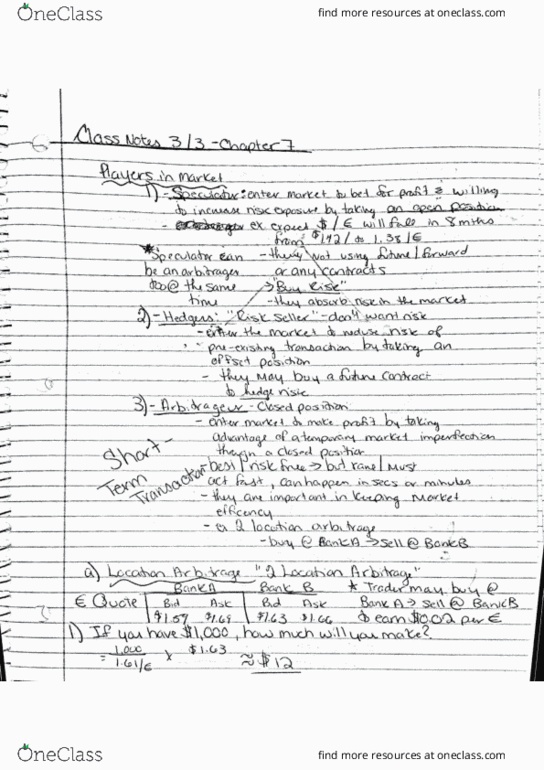 OneClass find more resources at oneclass.com
Class Notes 3/3 - Chapter 7
Players in market
1) - Speculator: enter market to bet for profit & willing
to increase risk exposure by taking an open position
- ex expect $/€ will fall in 8 mths
from $1.42/ to 1.38/€
*Speculator can - they not using future/forward
be an arbitrages or any contracts
too @ the same → "Buy Risk"
time - they absorb risk in the market
2) - Hedgers: "Risk Seller" - don't want risk
- enter the market to reduse risk of
pre-existing transaction by taking an
offset position
- they may buy a future contract
to hedge risk
3) - Arbitrageur - Closed position
- enter market to make profit by taking
advantage of a temporary market imperfection
in a closed position
Short-
Term
Transactor
best/risk free → but rare/must
act fast, can happen in secs or minutes
- they are important in keeping market
efficency
- ex 2 location arbitrage
- buy @ Bank A → sell @ Bank B
a) Location Arbitrage "2 Location Arbitrage"
Bank A Bank B * Trader may buy @
€ Quote Bid Ask Bid Ask Bank A → sell @ Bank B
$1.57 $1.63 $1.66 to earn $0.02 per €
1) If you have $1,000, how much will you make?
= 1,000 / 1.61/€ × $1.63 ≈ $12
OneClass find more resources at oneclass.com